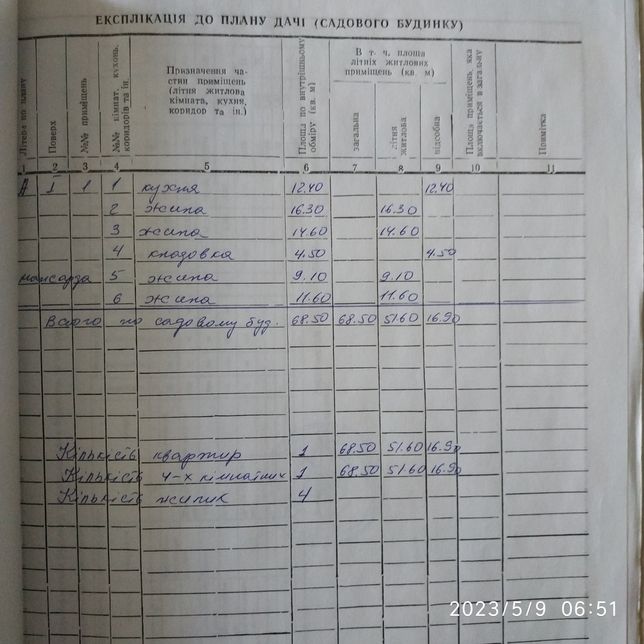 ЕКСПЛІКАЦІЯ ДО ПЛАНУ ДАЧІ (САДОВОГО БУДИНКУ)
Літера по плану
Поверх
№№ приміщень
№№ кімнат, кухонь, коридорів та ін.
Призначення частин приміщень (літня житлова кімната, кухня, коридор та ін.)
Площа по внутрішньому обміру (кв. м)
В т. ч. площа літніх житлових приміщень (кв. м)
загальна
літня житлова
підсобна
Площа приміщень, яка включається в загальну
Примітка
1 2 3 4 5 6 7 8 9 10 11
А І 1 1 кухня 12.40 12.40
2 жила 16.30 16.30
3 жила 14.60 14.60
4 кладовка 4.50 4.50
мансарда 5 жила 9.10 9.10
6 жила 11.60 11.60
Всього по садовому буд. 68.50 68.50 51.60 16.90
Кількість квартир 1 68.50 51.60 16.90
Кількість 4-х кімнатних 1 68.50 51.60 16.90
Кількість жилих 4
2023/5/9 06:51